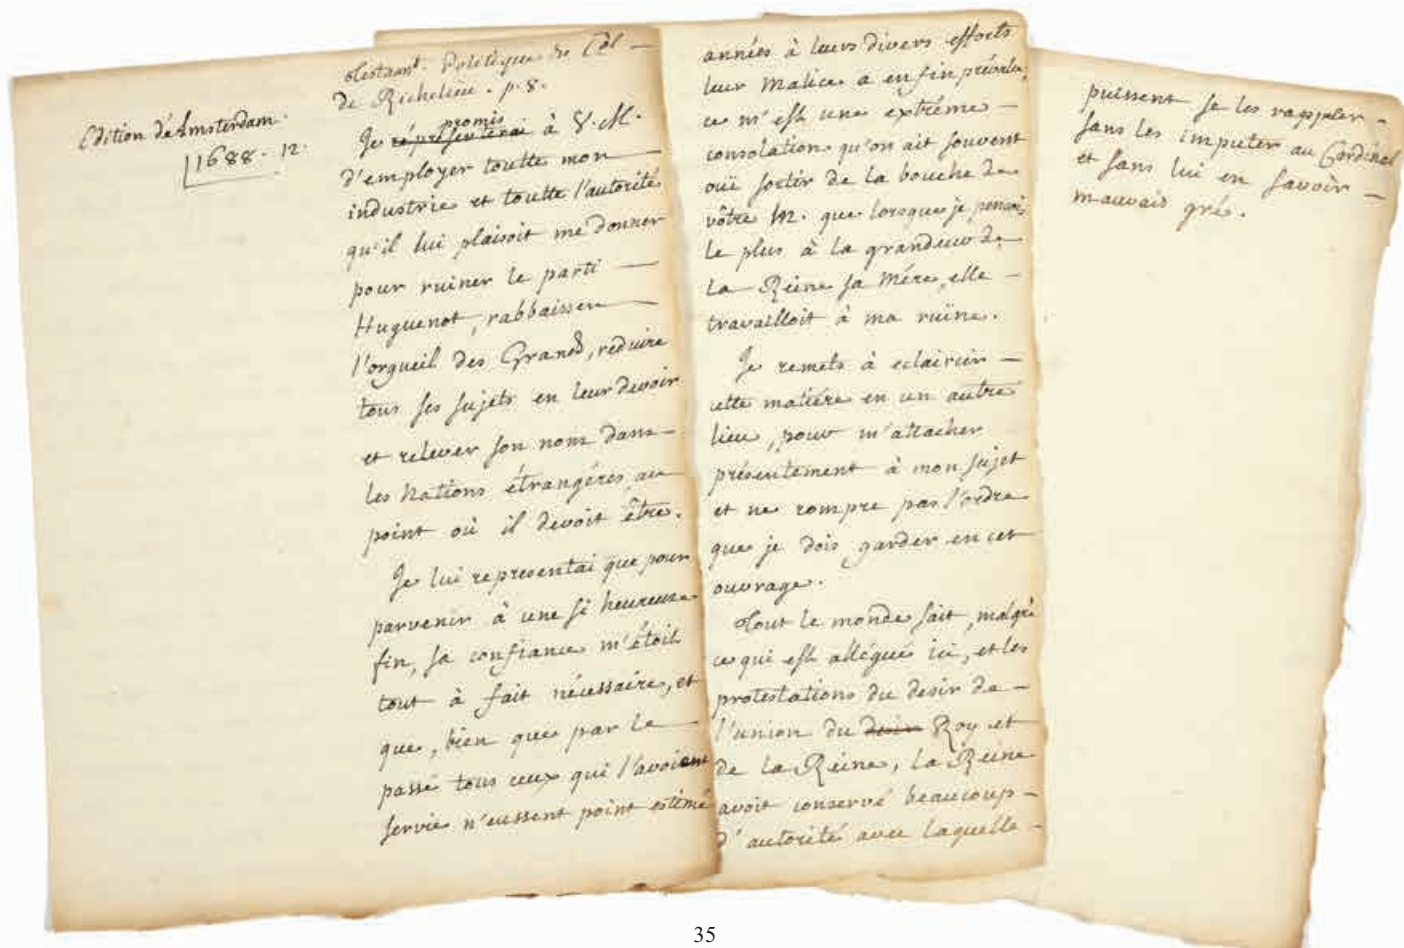 Edition d'Amsterdam.
1688. 12.
Testamt. Politique du Col
de Richelieu. p. 8.
promis
Je représenterai à V. M.
d'employer toutte mon
industrie et toutte l'autorité
qu'il lui plaisoit me donner
pour ruiner le parti
Huguenot, rabbaisser
l'orgueil des Grands, réduire
tous ses sujets en leur devoir
et relever son nom dans
les Nations étrangéres, au
point où il devoit être.
Je lui representai que pour
parvenir à une si heureuse
fin, sa confiance m'étoit
tout à fait nécessaire, et
que, bien que par le
passé tous ceux qui l'avoient
servie n'eussent point estimé
années à leurs divers efforts
leur malice a en fin prévalu,
ce m'est une extrême
consolation qu'on ait souvent
ouï sortir de la bouche de
vôtre M. que lorsque je pensois
le plus à la grandeur de
la Reine sa Mére, elle
travailloit à ma ruïne.
Je remets à eclaircir
cette matiére en un autre
lieu, pour m'attacher
présentement à mon sujet
et ne rompre pas l'ordre
que je dois garder en cet
ouvrage.
Tout le monde sait, malgré
ce qui est allégué ici, et les
protestations du desir de
l'union du desir Roy et
de la Reine, la Reine
avoit conservé beaucoup
d'autorité avec laquelle
puissent se les rappeler
sans les imputer au Cardinal
et sans lui en savoir
mauvais gré.
35